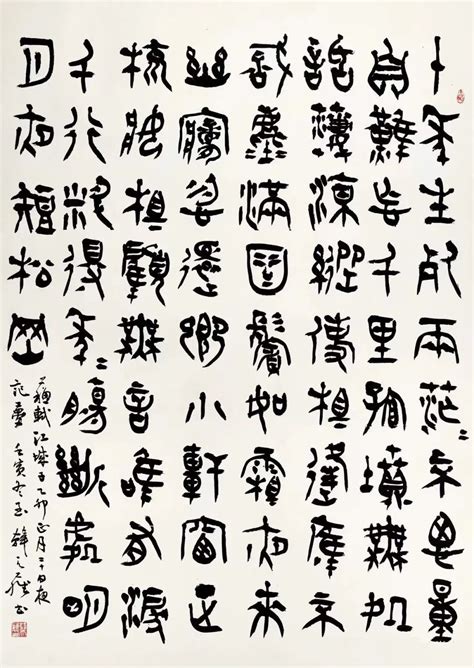 十年生死兩茫〻不思量
自難忘千里孤墳無處
話淒涼縱使相逢應不
識塵滿面鬢如霜夜來
幽夢忽還鄉小軒窗正
梳妝相顧無言唯有淚
千行料得年〻腸斷處明
月夜短松岡
蘇軾江城子乙卯正月二十日夜
記夢 壬寅冬 書